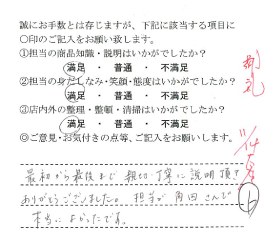 誠にお手数とは存じますが、下記に該当する項目に
〇印のご記入をお願い致します。
①担当の商品知識・説明はいかがでしたか?
満足 ・ 普通 ・ 不満足
②担当の身だしなみ・笑顔・態度はいかがでしたか?
満足 ・ 普通 ・ 不満足
③店内外の整理・整頓・清掃はいかがでしたか?
満足 ・ 普通 ・ 不満足
◎ご意見・お気付きの点等、ご記入をお願いします。
最初から最後まで親切・丁寧に説明頂き
ありがとうございました。担当が角田さんで
本当によかったです。
11/14